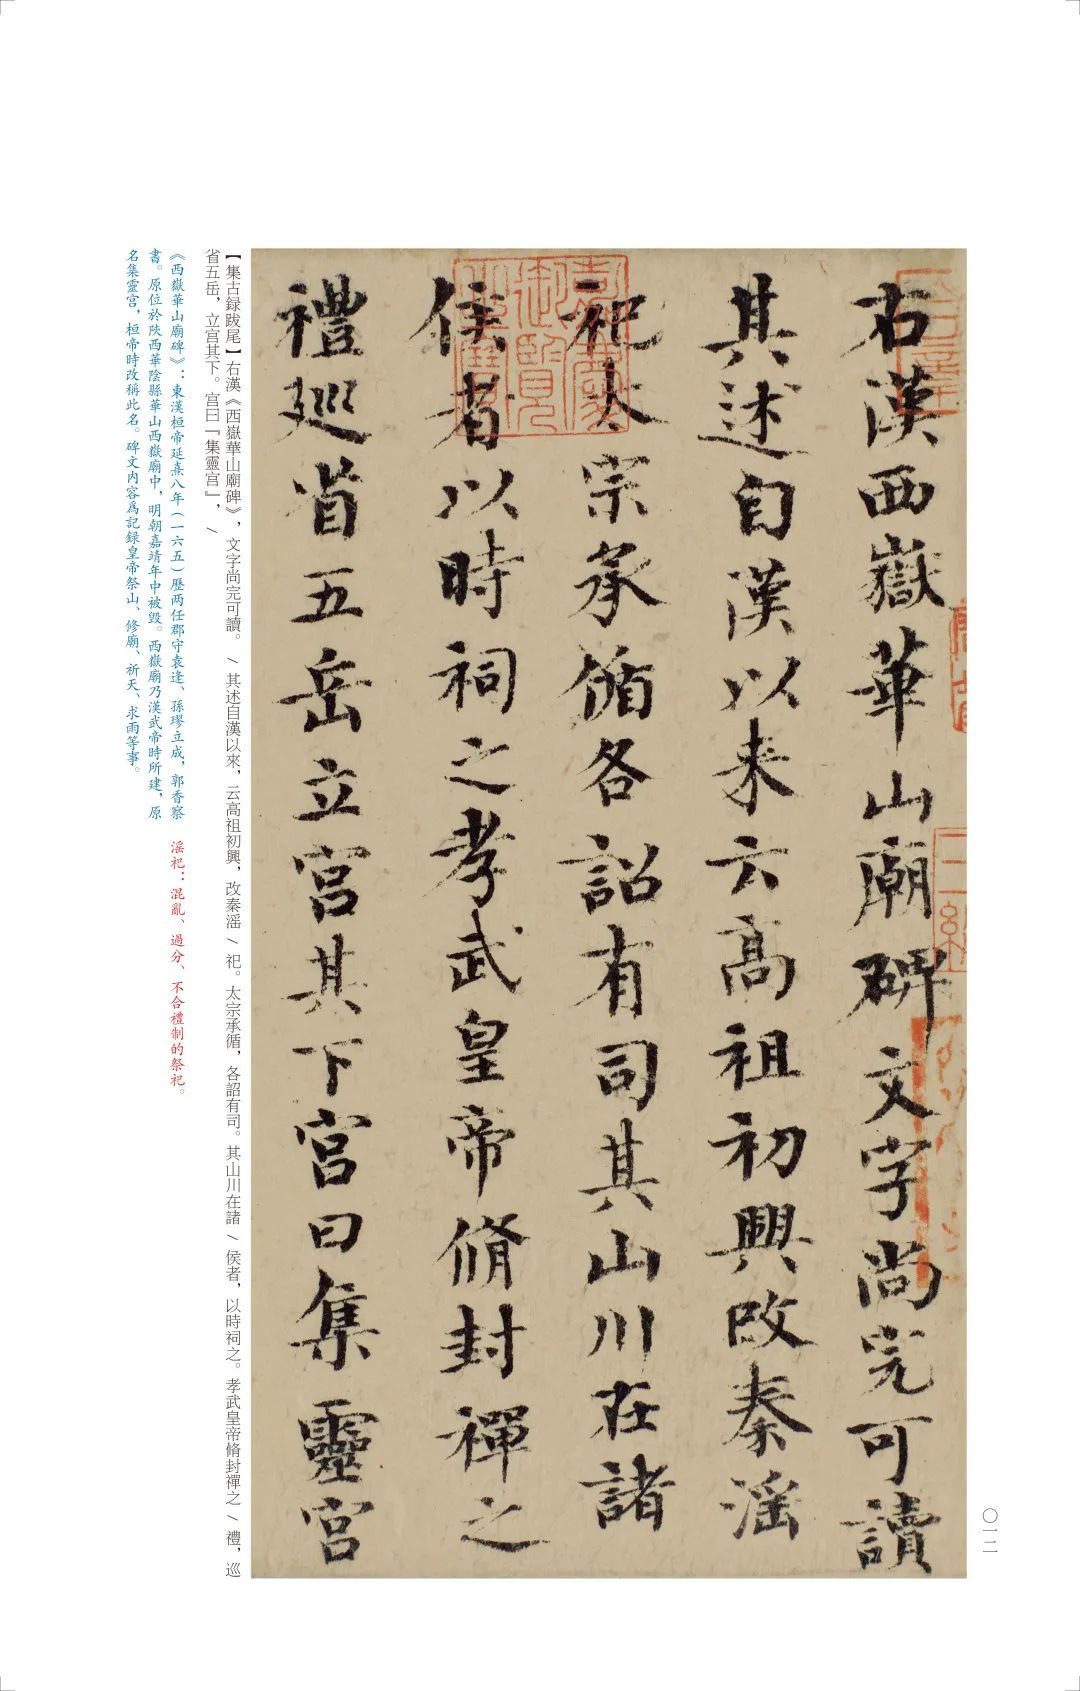 右漢西嶽華山廟碑文字尚完可讀
其述自漢以来云高祖初興改秦滛
祀太宗承循各詔有司其山川在諸
侯者以時祠之孝武皇帝脩封禪之
禮巡省五岳立宫其下宫曰集靈宫
【集古録跋尾】右漢《西嶽華山廟碑》，文字尚完可讀。/其述自漢以來，云高祖初興，改秦滛/祀。太宗承循，各詔有司。其山川在諸/侯者，以時祠之。孝武皇帝脩封禪之/禮，巡
省五岳，立宫其下。宫曰『集靈宫』，/
《西嶽華山廟碑》：東漢桓帝延熹八年（一六五）歷两任郡守袁逢、孫璆立成，郭香察
書。原位於陝西華陰縣華山西嶽廟中，明朝嘉靖年中被毁。西嶽廟乃漢武帝時所建，原
名集靈宫，桓帝時改稱此名。碑文内容爲記録皇帝祭山、修廟、祈天、求雨等事。
滛祀：混亂、過分、不合禮制的祭祀。
〇一二